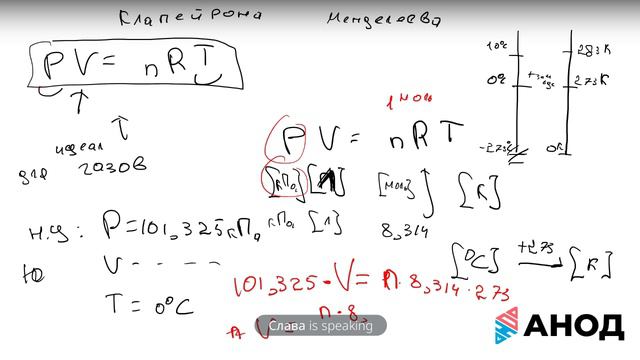 Клапейрона Менделеева
PV = nRT
для идеал газов
10°C 283К
0°C 273К
-273°C 0К
1 моль
PV = nRT
[кПа] [моль] [К]
кПа [л] 8,314
н.у: P = 101,325 кПа
V - - - -
T = 0°C
[°C] +273 [К]
101,325 · V = n · 8,314 · 273
V = n · 8,
Слава is speaking
АНОД